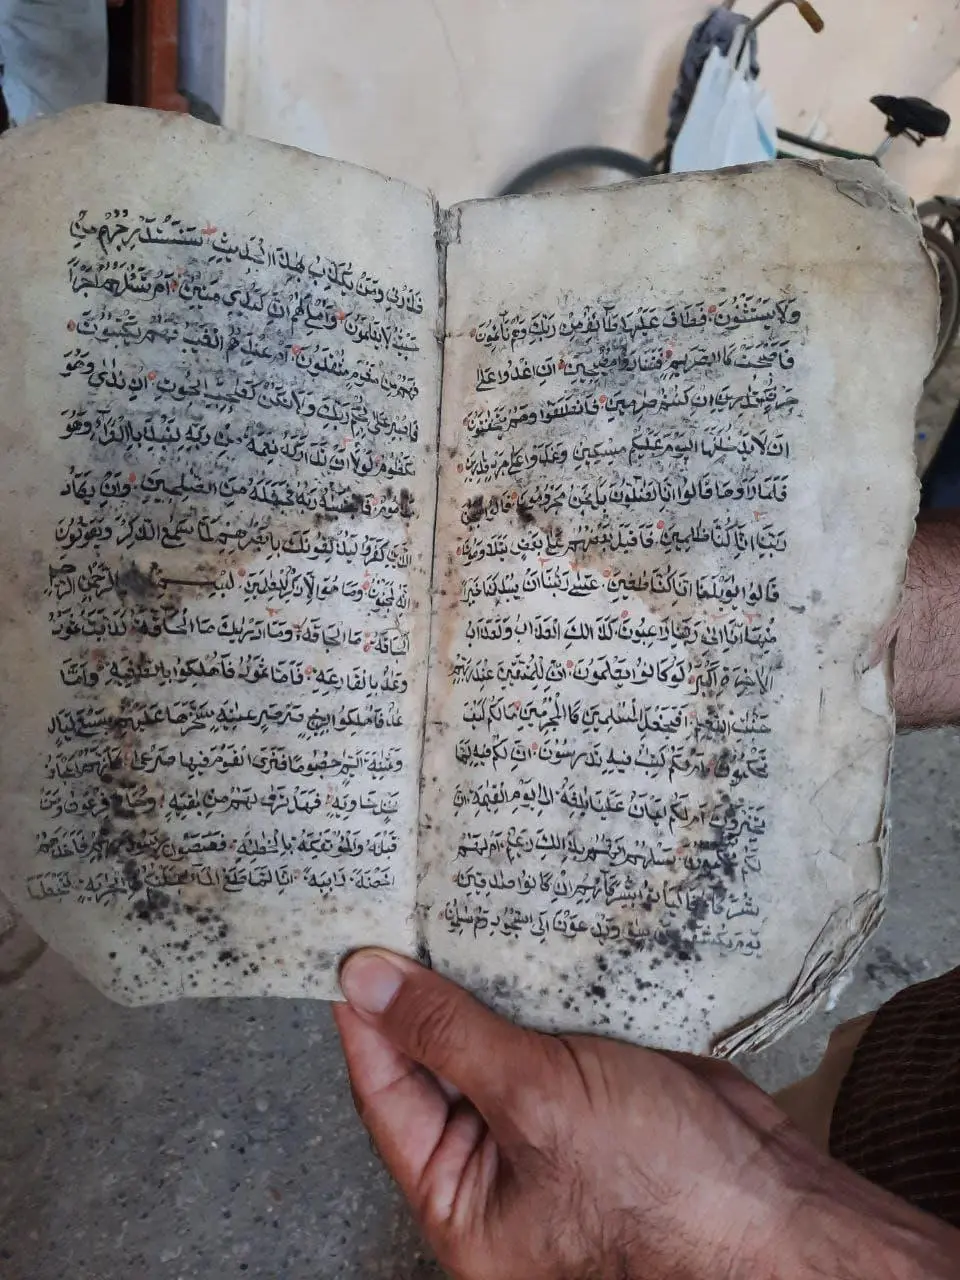 وَلَا يَسْتَثْنُونَ فَطَافَ عَلَيْهَا طَائِفٌ مِنْ رَبِّكَ وَهُمْ نَائِمُونَ
فَاَصْبَحَتْ كَالصَّرِيمِ فَتَنَادَوْا مُصْبِحِينَ اَنِ اغْدُوا عَلَى
حَرْثِكُمْ اِنْ كُنْتُمْ صَارِمِينَ فَانْطَلَقُوا وَهُمْ يَتَخَافَتُونَ
اَنْ لَا يَدْخُلَنَّهَا الْيَوْمَ عَلَيْكُمْ مِسْكِينٌ وَغَدَوْا عَلَى حَرْدٍ قَادِرِينَ
فَلَمَّا رَاَوْهَا قَالُوا اِنَّا لَضَالُّونَ بَلْ نَحْنُ مَحْرُومُونَ قَالَ
رَبِّنَا اِنَّا كُنَّا ظَالِمِينَ فَاَقْبَلَ بَعْضُهُمْ عَلَى بَعْضٍ يَتَلَاوَمُونَ
قَالُوا يَا وَيْلَنَا اِنَّا كُنَّا طَاغِينَ عَسَى رَبُّنَا اَنْ يُبْدِلَنَا خَيْرًا
مِنْهَا اِنَّا اِلَى رَبِّنَا رَاغِبُونَ كَذَلِكَ الْعَذَابُ وَلَعَذَابُ
الْآخِرَةِ اَكْبَرُ لَوْ كَانُوا يَعْلَمُونَ اِنَّ لِلْمُتَّقِينَ عِنْدَ رَبِّهِمْ
جَنَّاتِ النَّعِيمِ اَفَنَجْعَلُ الْمُسْلِمِينَ كَالْمُجْرِمِينَ مَا لَكُمْ كَيْفَ
تَحْكُمُونَ اَمْ لَكُمْ كِتَابٌ فِيهِ تَدْرُسُونَ اِنَّ لَكُمْ فِيهِ لَمَا
تَخَيَّرُونَ اَمْ لَكُمْ اَيْمَانٌ عَلَيْنَا بَالِغَةٌ اِلَى يَوْمِ الْقِيَمَةِ اِنَّ
لَكُمْ لَمَا تَحْكُمُونَ سَلْهُمْ اَيُّهُمْ بِذَلِكَ زَعِيمٌ اَمْ لَهُمْ
شُرَكَاءُ فَلْيَأْتُوا بِشُرَكَائِهِمْ اِنْ كَانُوا صَادِقِينَ
يَوْمَ يُكْشَفُ وَيُدْعَوْنَ اِلَى السُّجُودِ
فَذَرْنِي وَمَنْ يُكَذِّبُ بِهَذَا الْحَدِيثِ سَنَسْتَدْرِجُهُمْ مِنْ
حَيْثُ لَا يَعْلَمُونَ وَاُمْلِي لَهُمْ اِنَّ كَيْدِي مَتِينٌ اَمْ تَسْئَلُهُمْ اَجْرًا
فَهُمْ مِنْ مَغْرَمٍ مُثْقَلُونَ اَمْ عِنْدَهُمُ الْغَيْبُ فَهُمْ يَكْتُبُونَ
فَاصْبِرْ لِحُكْمِ رَبِّكَ وَلَا تَكُنْ كَصَاحِبِ الْحُوتِ اِذْ نَادَى وَهُوَ
مَكْظُومٌ لَوْلَا اَنْ تَدَارَكَهُ نِعْمَةٌ مِنْ رَبِّهِ لَنُبِذَ بِالْعَرَاءِ وَهُوَ
مَذْمُومٌ فَاجْتَبَاهُ رَبُّهُ فَجَعَلَهُ مِنَ الصَّلِحِينَ وَاِنْ يَكَادُ
الَّذِينَ كَفَرُوا لَيُزْلِقُونَكَ بِاَبْصَارِهِمْ لَمَّا سَمِعُوا الذِّكْرَ وَيَقُولُونَ
اِنَّهُ لَمَجْنُونٌ وَمَا هُوَ اِلَّا ذِكْرٌ لِلْعَالَمِينَ بِسْمِ الرَّحْمَنِ الرَّحِيمِ
اَلْحَاقَّةُ مَا الْحَاقَّةُ وَمَا اَدْرَيكَ مَا الْحَاقَّةُ كَذَّبَتْ ثَمُودُ
وَعَادٌ بِالْقَارِعَةِ فَاَمَّا ثَمُودُ فَاُهْلِكُوا بِالطَّاغِيَةِ وَاَمَّا
عَادٌ فَاُهْلِكُوا بِرِيحٍ صَرْصَرٍ عَاتِيَةٍ سَخَّرَهَا عَلَيْهِمْ سَبْعَ لَيَالٍ
وَثَمَنِيَةَ اَيَّامٍ حُسُومًا فَتَرَى الْقَوْمَ فِيهَا صَرْعَى كَاَنَّهُمْ اَعْجَازُ
نَخْلٍ خَاوِيَةٍ فَهَلْ تَرَى لَهُمْ مِنْ بَاقِيَةٍ وَجَاءَ فِرْعَوْنُ وَمَنْ
قَبْلَهُ وَالْمُؤْتَفِكَاتُ بِالْخَاطِئَةِ فَعَصَوْا رَسُولَ رَبِّهِمْ فَاَخَذَهُمْ
اَخْذَةً رَابِيَةً اِنَّا لَمَّا طَغَى الْمَاءُ حَمَلْنَاكُمْ فِي الْجَارِيَةِ لِنَجْعَلَهَا